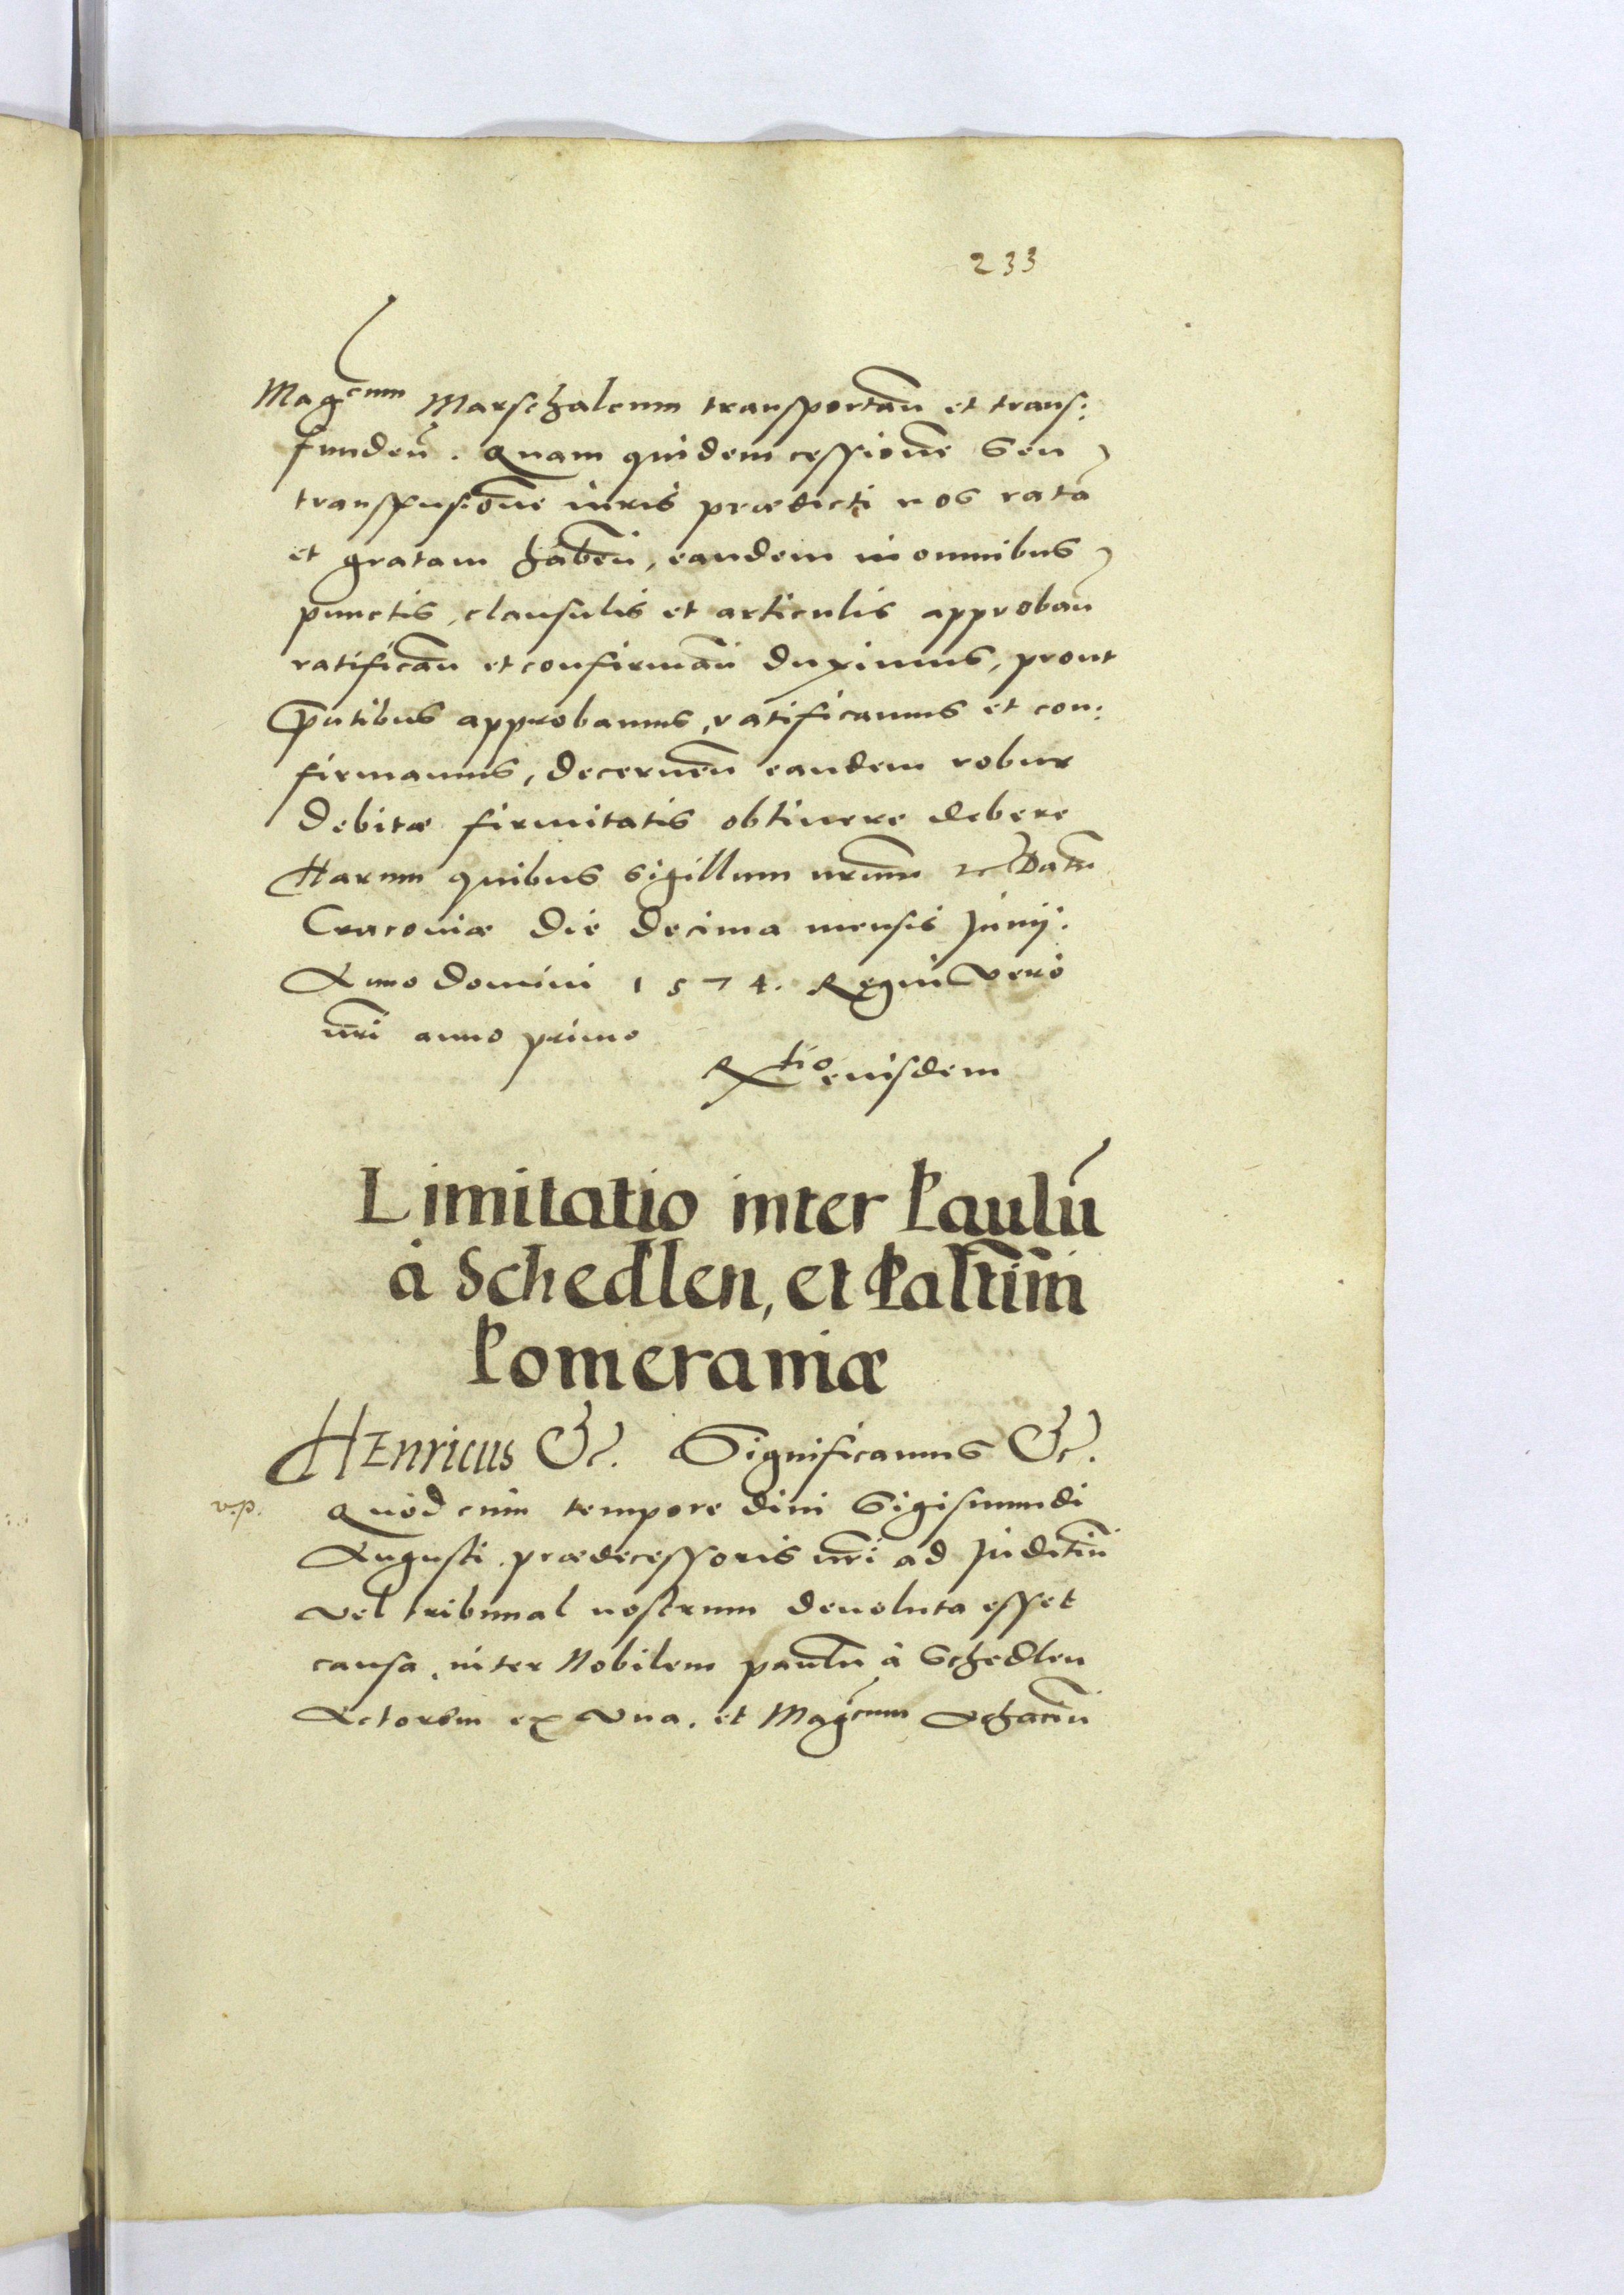 233
Mag^cum Marschalcum transportan̄ et trans:
funden̄. Quam quidem cessionē seu
transfusionē iuris prædicti nos ratā
et gratam habēn, eandem in omnibus
punctis, clausulis et articulis approban̄
ratifican̄ et confirman̄ duximus, prout
p̄ntibus approbamus, ratificamus et con:
firmamus, decernēn eandem robur
debitæ firmitatis obtinere debere
Harum quibus sigillum nr̄um etc Datū
Cracoviæ die decima mensis Junij.
Anno Domini 1574. Regni vero
nr̄i anno primo
R^tio eiusdem
Limitatio inter Paulū
à Schedlen, et Palt̄inū
Pomeraniæ
Henricus &c. Significamus &c.
v.p.
Quod cum tempore divi Sigismundi
Augusti prædecessoris nr̄i ad Juditiū
vel tribunal nostrum devoluta esset
causa, inter Nobilem Paulū à Schedlen
Actorem ex una, et Mag^cum Achaciū